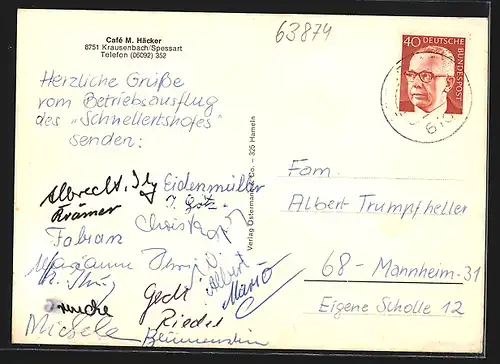 63874
Café M. Häcker
8751 Krausenbach/Spessart
Telefon (06092) 352
40 DEUTSCHE BUNDESPOST
Herzliche Grüße
vom Betriebsausflug
des "Schnellertshofes"
senden:
Albrecht, Eidenmüller
Krämer
Fabian
Marianne
Albert
Mario
Gedt
Michele Rieder
Verlag Ostermann & Co. – 325 Hameln
Fam.
Albert Trumpfheller
68 - Mannheim-31
Eigene Scholle 12